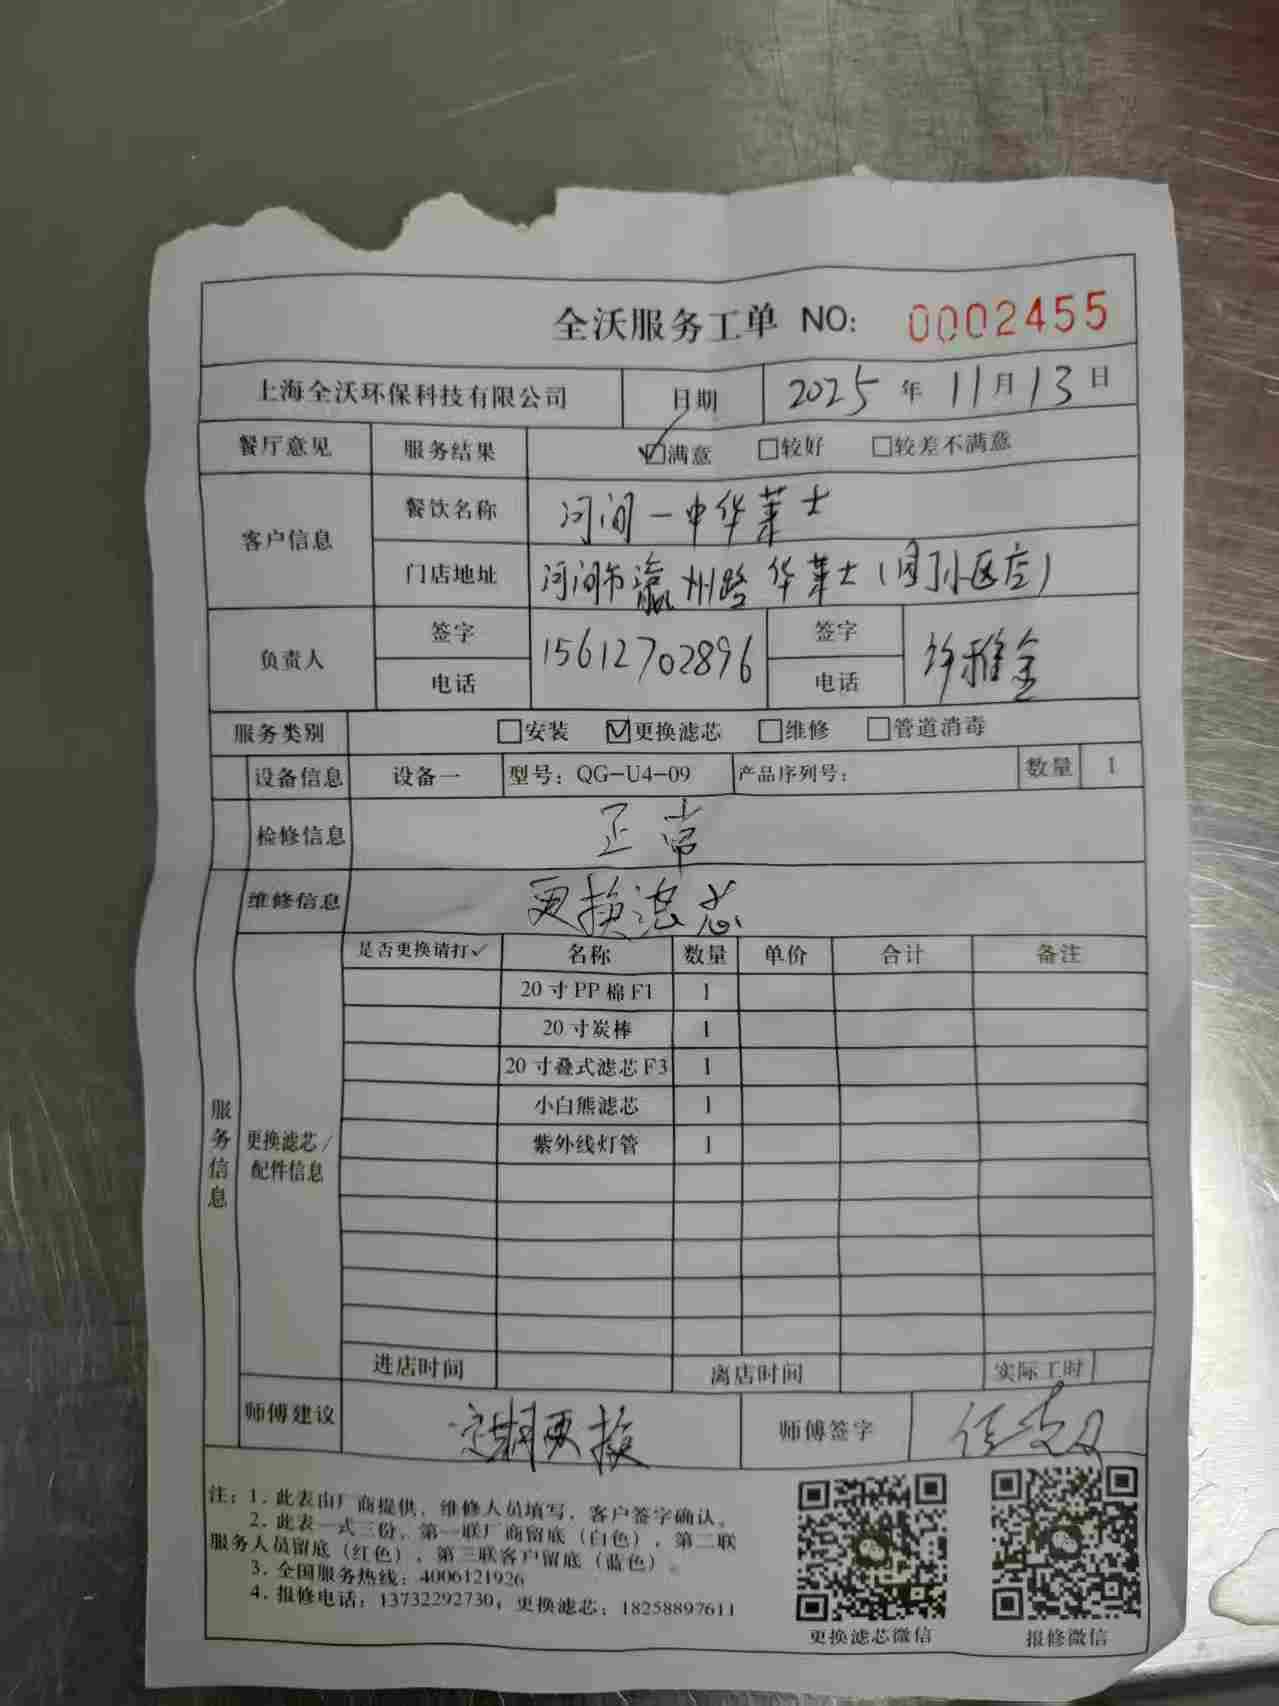 全沃服务工单 NO: 0002455
上海全沃环保科技有限公司 日期 2025年11月13日
餐厅意见 服务结果 ☑满意 □较好 □较差不满意
客户信息 餐饮名称 河间一中华莱士
门店地址 河间市瀛州路华莱士(小区店)
负责人 签字 电话 15612702896 签字 电话 雅金
服务类别 □安装 ☑更换滤芯 □维修 □管道消毒
设备信息 设备一 型号:QG-U4-09 产品序列号: 数量 1
检修信息 正常
维修信息 更换滤芯
服务信息
更换滤芯/配件信息
是否更换请打✓ 名称 数量 单价 合计 备注
20寸PP棉F1 1
20寸炭棒 1
20寸叠式滤芯F3 1
小白熊滤芯 1
紫外线灯管 1
进店时间 离店时间 实际工时
师傅建议 定期更换 师傅签字
注:1.此表由厂商提供,维修人员填写,客户签字确认。
2.此表一式三份,第一联厂商留底(白色),第二联
服务人员留底(红色),第三联客户留底(蓝色)。
3.全国服务热线:4006121926
4.报修电话:13732292730;更换滤芯:18258897611
更换滤芯微信 报修微信